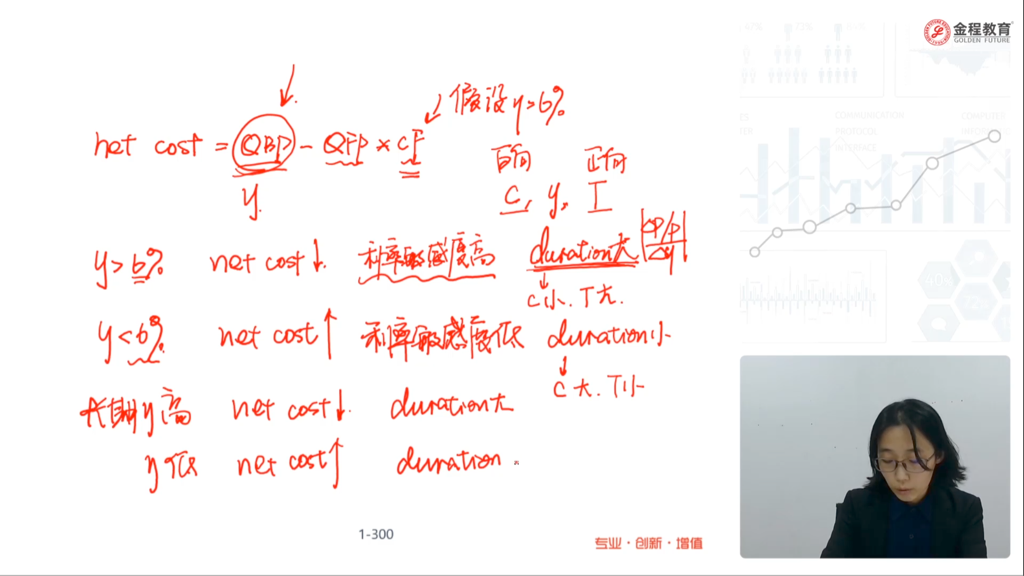 金程教育
GOLDEN FUTURE
假设 y=6%
net cost = QBP - QFP × CF
反向 正向
y. C, y, T
y > 6% net cost ↓. 利率敏感度高 duration大 |ΔP/P / Δy|
C小. T大.
y < 6% net cost ↑ 利率敏感度低 duration小
C大. T小
长期y高 net cost ↓. duration大
y低 net cost ↑ duration
1-300
专业·创新·增值